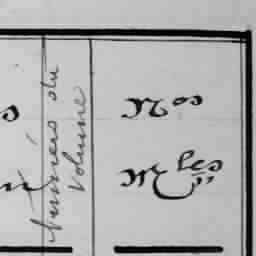 numéro du
volume
Nos
Mles